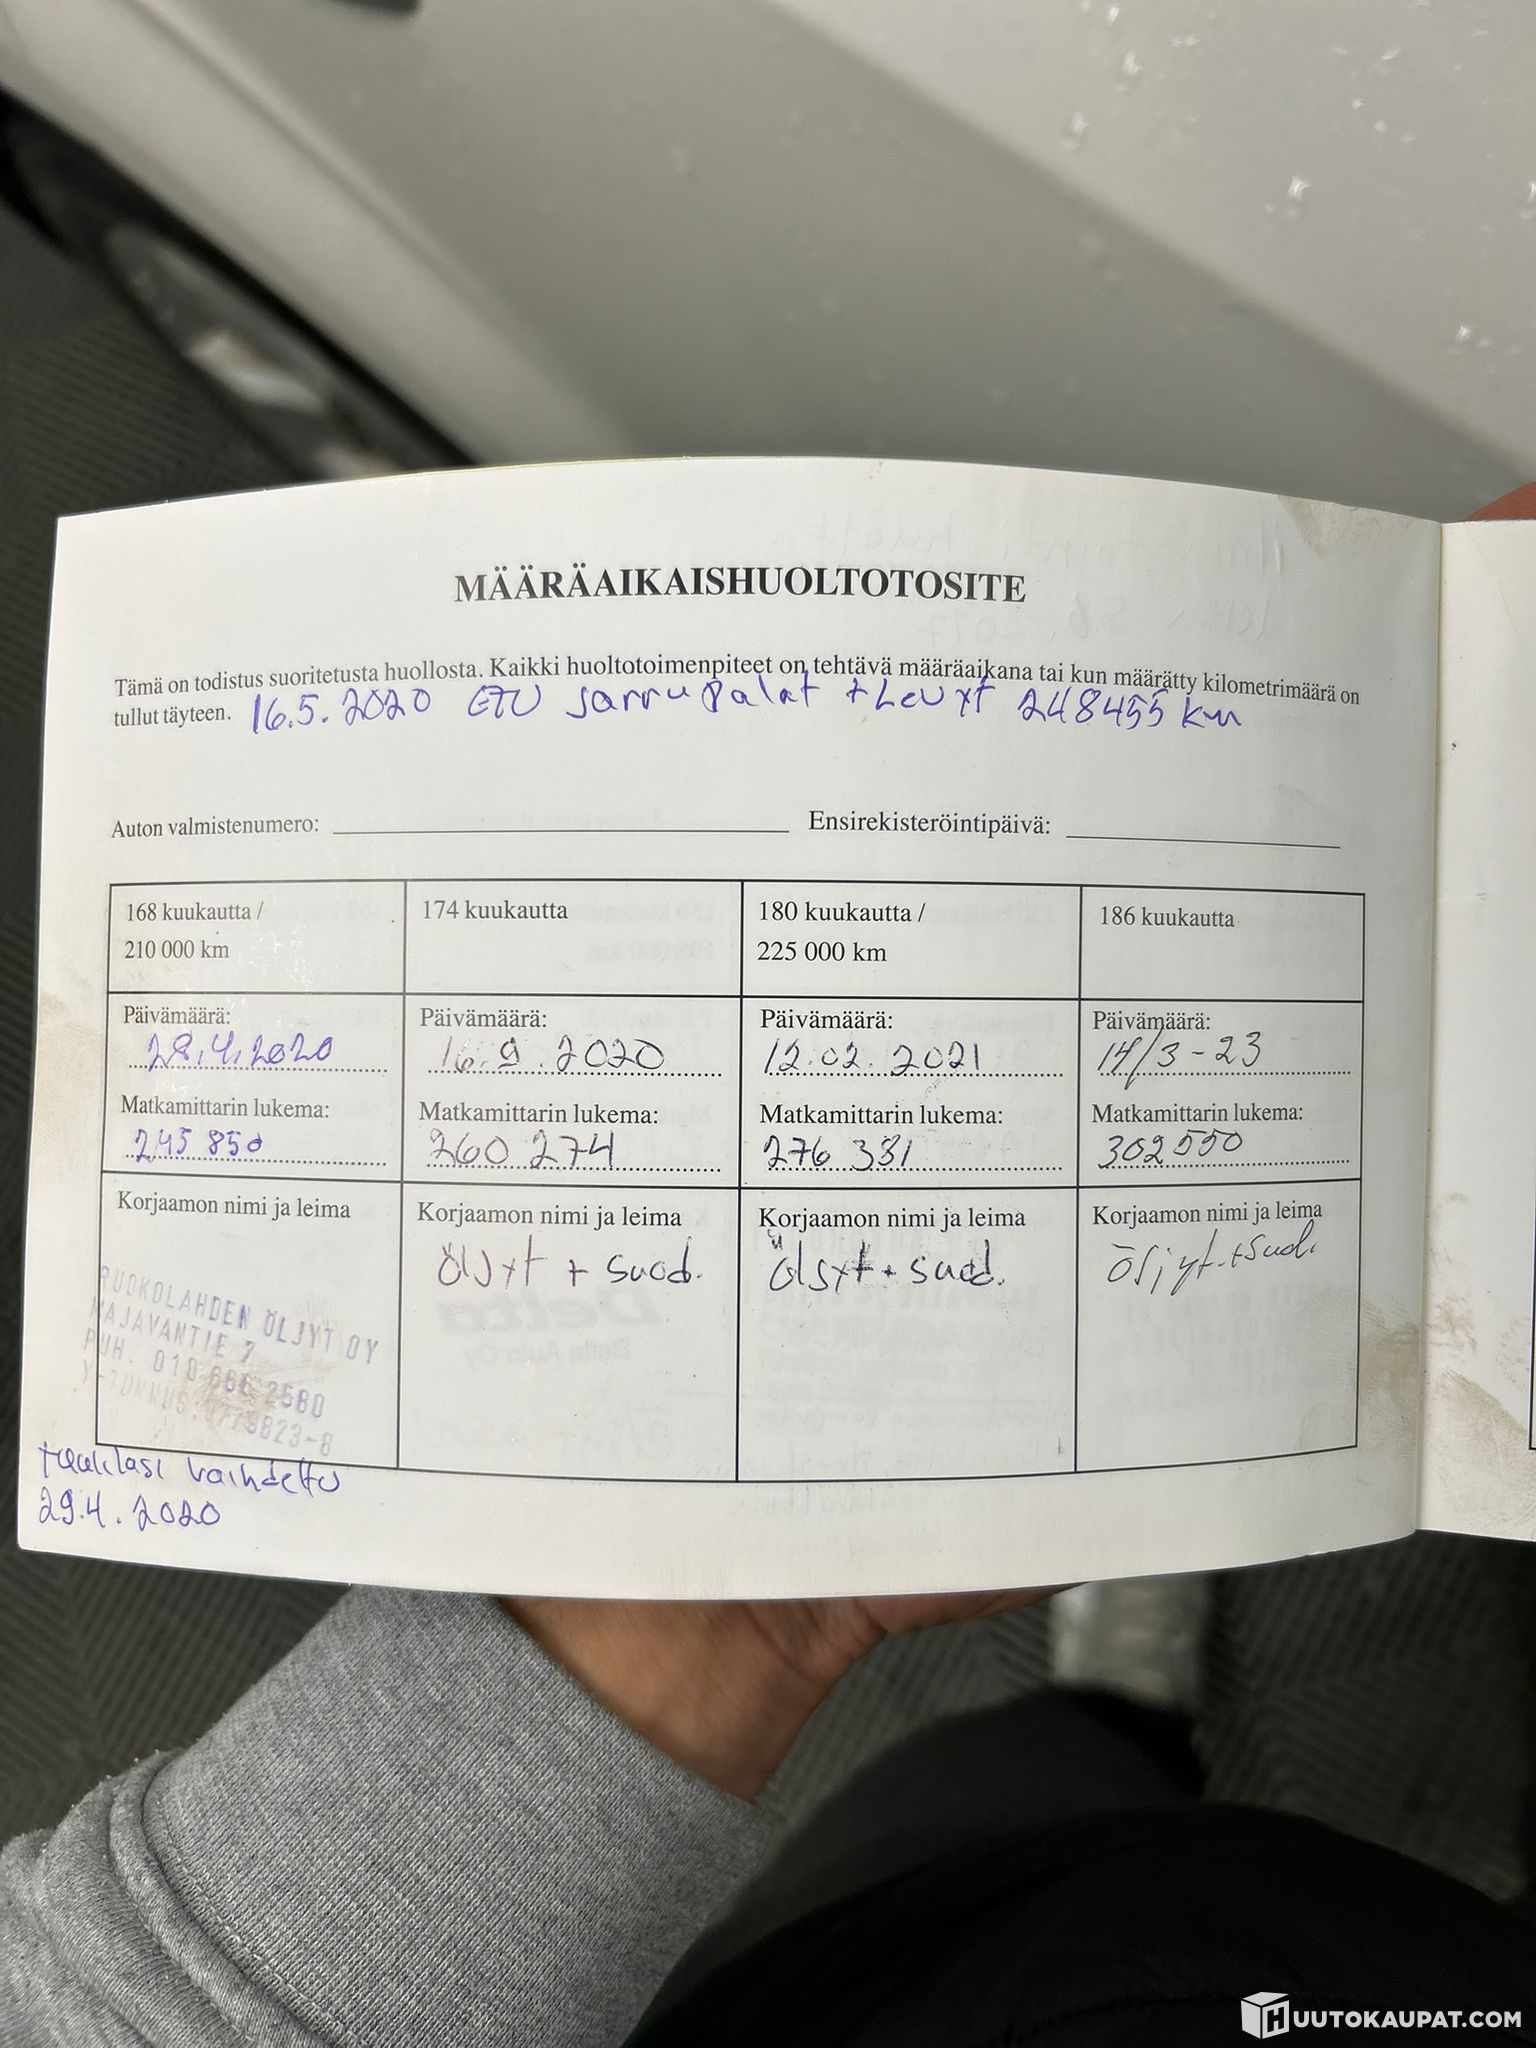 MÄÄRÄAIKAISHUOLTOTOSITE
Tämä on todistus suoritetusta huollosta. Kaikki huoltotoimenpiteet on tehtävä määräaikana tai kun määrätty kilometrimäärä on
tullut täyteen. 16.5.2020 ETU Jarrupalat + Levyt 248455 km
Auton valmistenumero:
Ensirekisteröintipäivä:
168 kuukautta /
210 000 km
Päivämäärä:
28.4.2020
Matkamittarin lukema:
245 850
Korjaamon nimi ja leima
RUOKOLAHDEN ÖLJYT OY
MAJAVANTIE 7
PUH. 010 666 2580
Y-TUNNUS:
tuulilasi vaihdettu
29.4.2020
174 kuukautta
Päivämäärä:
16.9.2020
Matkamittarin lukema:
260 274
Korjaamon nimi ja leima
Öljyt + suod.
180 kuukautta /
225 000 km
Päivämäärä:
12.02.2021
Matkamittarin lukema:
276 331
Korjaamon nimi ja leima
Öljyt + suod.
186 kuukautta
Päivämäärä:
14/3-23
Matkamittarin lukema:
302550
Korjaamon nimi ja leima
Öljyt + suod.
HUUTOKAUPAT.COM